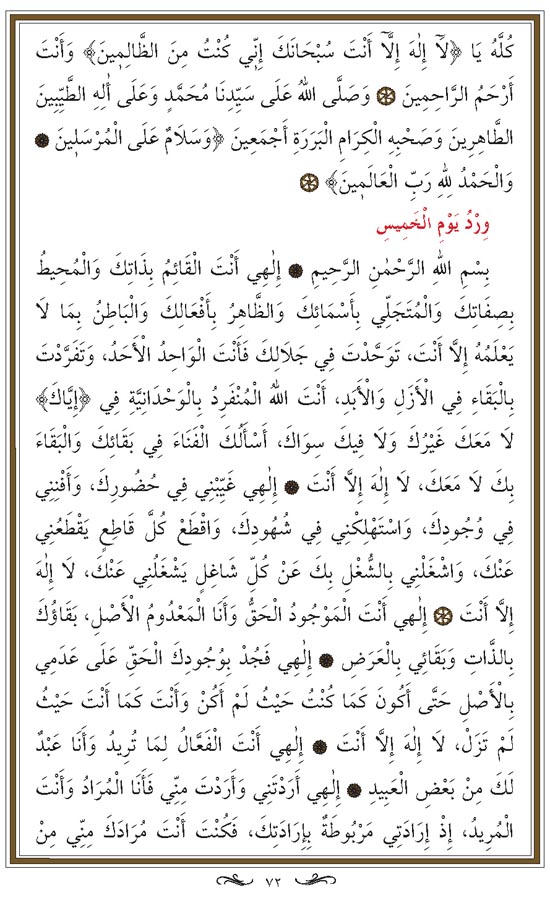 كُلَّهُ يَا ﴿لَآ إِلٰهَ إِلَّآ أَنْتَ سُبْحَانَكَ إِنّ۪ي كُنْتُ مِنَ الظَّالِم۪ينَ﴾ وَأَنْتَ
أَرْحَمُ الرَّاحِمِينَ ۞ وَصَلَّى اللهُ عَلَى سَيِّدِنَا مُحَمَّدٍ وَعَلَى أٰلِهِ الطَّيِّبِينَ
الطَّاهِرِينَ وَصَحْبِهِ الْكِرَامِ الْبَرَرَةِ أَجْمَعِينَ ﴿وَسَلَامٌ عَلَى الْمُرْسَل۪ينَ ۞
وَالْحَمْدُ لِلهِ رَبِّ الْعَالَم۪ينَ﴾ ۞
وِرْدُ يَوْمِ الْخَمِيسِ
بِسْمِ اللهِ الرَّحْمٰنِ الرَّحِيمِ ۞ إِلٰهِي أَنْتَ الْقَائِمُ بِذَاتِكَ وَالْمُحِيطُ
بِصِفَاتِكَ وَالْمُتَجَلِّي بِأَسْمَائِكَ وَالظَّاهِرُ بِأَفْعَالِكَ وَالْبَاطِنُ بِمَا لَا
يَعْلَمُهُ إِلَّا أَنْتَ، تَوَحَّدْتَ فِي جَلَالِكَ فَأَنْتَ الْوَاحِدُ الْأَحَدُ، وَتَفَرَّدْتَ
بِالْبَقَاءِ فِي الْأَزَلِ وَالْأَبَدِ، أَنْتَ اللهُ الْمُنْفَرِدُ بِالْوَحْدَانِيَّةِ فِي ﴿إِيَّاكَ﴾
لَا مَعَكَ غَيْرُكَ وَلَا فِيكَ سِوَاكَ، أَسْأَلُكَ الْفَنَاءَ فِي بَقَائِكَ وَالْبَقَاءَ
بِكَ لَا مَعَكَ، لَا إِلٰهَ إِلَّا أَنْتَ ۞ إِلٰهِي غَيِّبْنِي فِي حُضُورِكَ، وَأَفْنِنِي
فِي وُجُودِكَ، وَاسْتَهْلِكْنِي فِي شُهُودِكَ، وَاقْطَعْ كُلَّ قَاطِعٍ يَقْطَعُنِي
عَنْكَ، وَاشْغَلْنِي بِالشُّغْلِ بِكَ عَنْ كُلِّ شَاغِلٍ يَشْغَلُنِي عَنْكَ، لَا إِلٰهَ
إِلَّا أَنْتَ ۞ إِلٰهِي أَنْتَ الْمَوْجُودُ الْحَقُّ وَأَنَا الْمَعْدُومُ الْأَصْلِ، بَقَاؤُكَ
بِالذَّاتِ وَبَقَائِي بِالْعَرَضِ ۞ إِلٰهِي فَجُدْ بِوُجُودِكَ الْحَقِّ عَلَى عَدَمِي
بِالْأَصْلِ حَتَّى أَكُونَ كَمَا كُنْتُ حَيْثُ لَمْ أَكُنْ وَأَنْتَ كَمَا أَنْتَ حَيْثُ
لَمْ تَزَلْ، لَا إِلٰهَ إِلَّا أَنْتَ ۞ إِلٰهِي أَنْتَ الْفَعَّالُ لِمَا تُرِيدُ وَأَنَا عَبْدٌ
لَكَ مِنْ بَعْضِ الْعَبِيدِ ۞ إِلٰهِي أَرَدْتَنِي وَأَرَدْتَ مِنِّي فَأَنَا الْمُرَادُ وَأَنْتَ
الْمُرِيدُ، إِذْ إِرَادَتِي مَرْبُوطَةٌ بِإِرَادَتِكَ، فَكُنْتَ أَنْتَ مُرَادَكَ مِنِّي مِنْ
٧٢